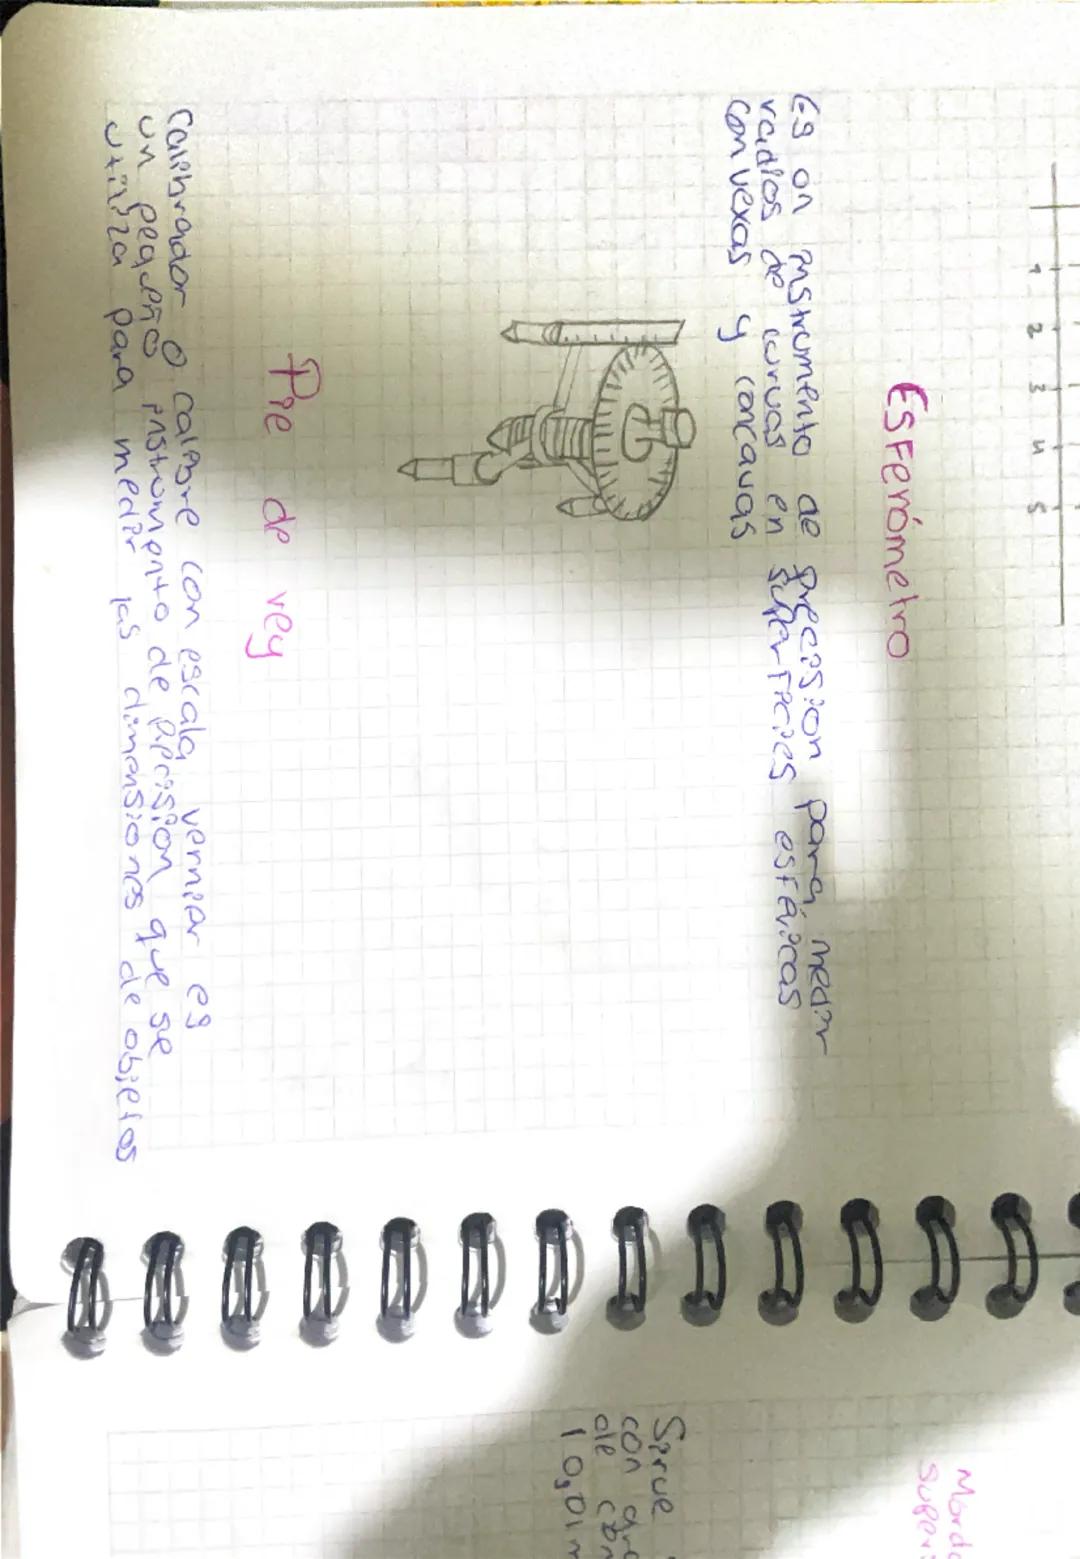 1 2 3 4 5
Esferómetro
Es on instrumento de precision para medir
radios de curvas en superficies esféricas
convexas y concavas
Pie de rey
Calibrador o calibre con escala vernier es
un pequeño instrumento de precision que se
utiliza para medir las dimensiones de objetos
Morde
super
Sirve
con
de